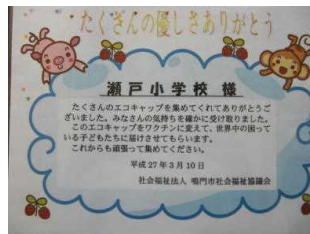 たくさんの優しさありがとう
瀬戸小学校 様
たくさんのエコキャップを集めてくれてありがとうご
ざいました。みなさんの気持ちを確かに受け取りました。
このエコキャップをワクチンに変えて、世界中の困って
いる子どもたちに届けさせてもらいます。
これからも頑張って集めてください。
平成27年3月10日
社会福祉法人 鳴門市社会福祉協議会